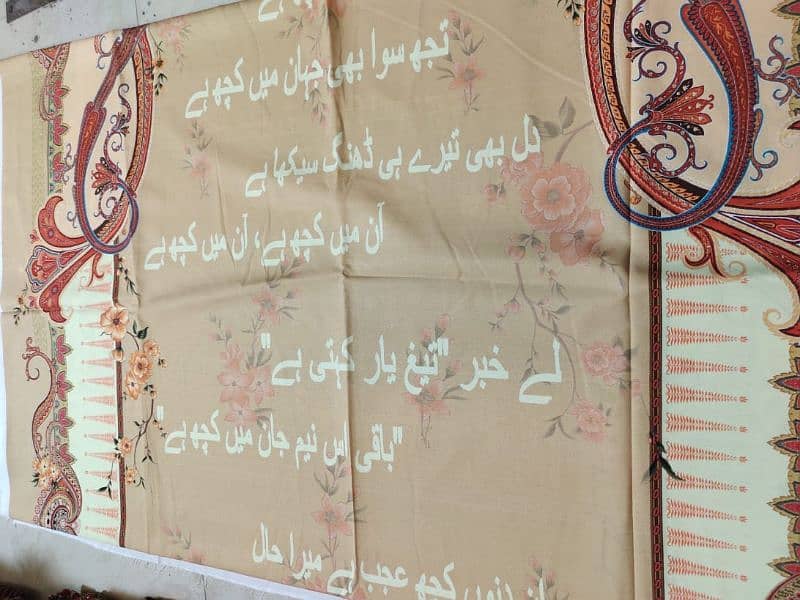 ہے
تجھ سوا بھی جہان میں کچھ ہے
دل بھی تیرے ہی ڈھنگ سیکھا ہے
آن میں کچھ ہے، آن میں کچھ ہے
لے خبر "تیغ یار کہتی ہے"
"باقی اس نیم جان میں کچھ ہے"
ان دنوں کچھ عجب ہے میرا حال